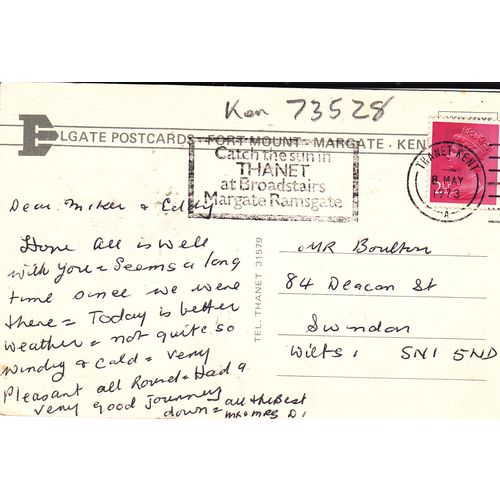 Ken 73528
ELGATE POSTCARDS · FORT MOUNT · MARGATE · KEN
Catch the sun in
THANET
at Broadstairs
Margate Ramsgate
THANET-KENT
8 MAY
1973
A
Dear Miker &
Hope All is Well
with you = Seems a long
time since we were
there = Today is better
weather = not quite so
windy & Cold = very
Pleasant all Round = Had a
very good Journey
down = all the Best
MR & MRS D.
TEL. THANET 31579
MR Boulton
84 Deacon St
Swindon
Wilts, SN1 5ND